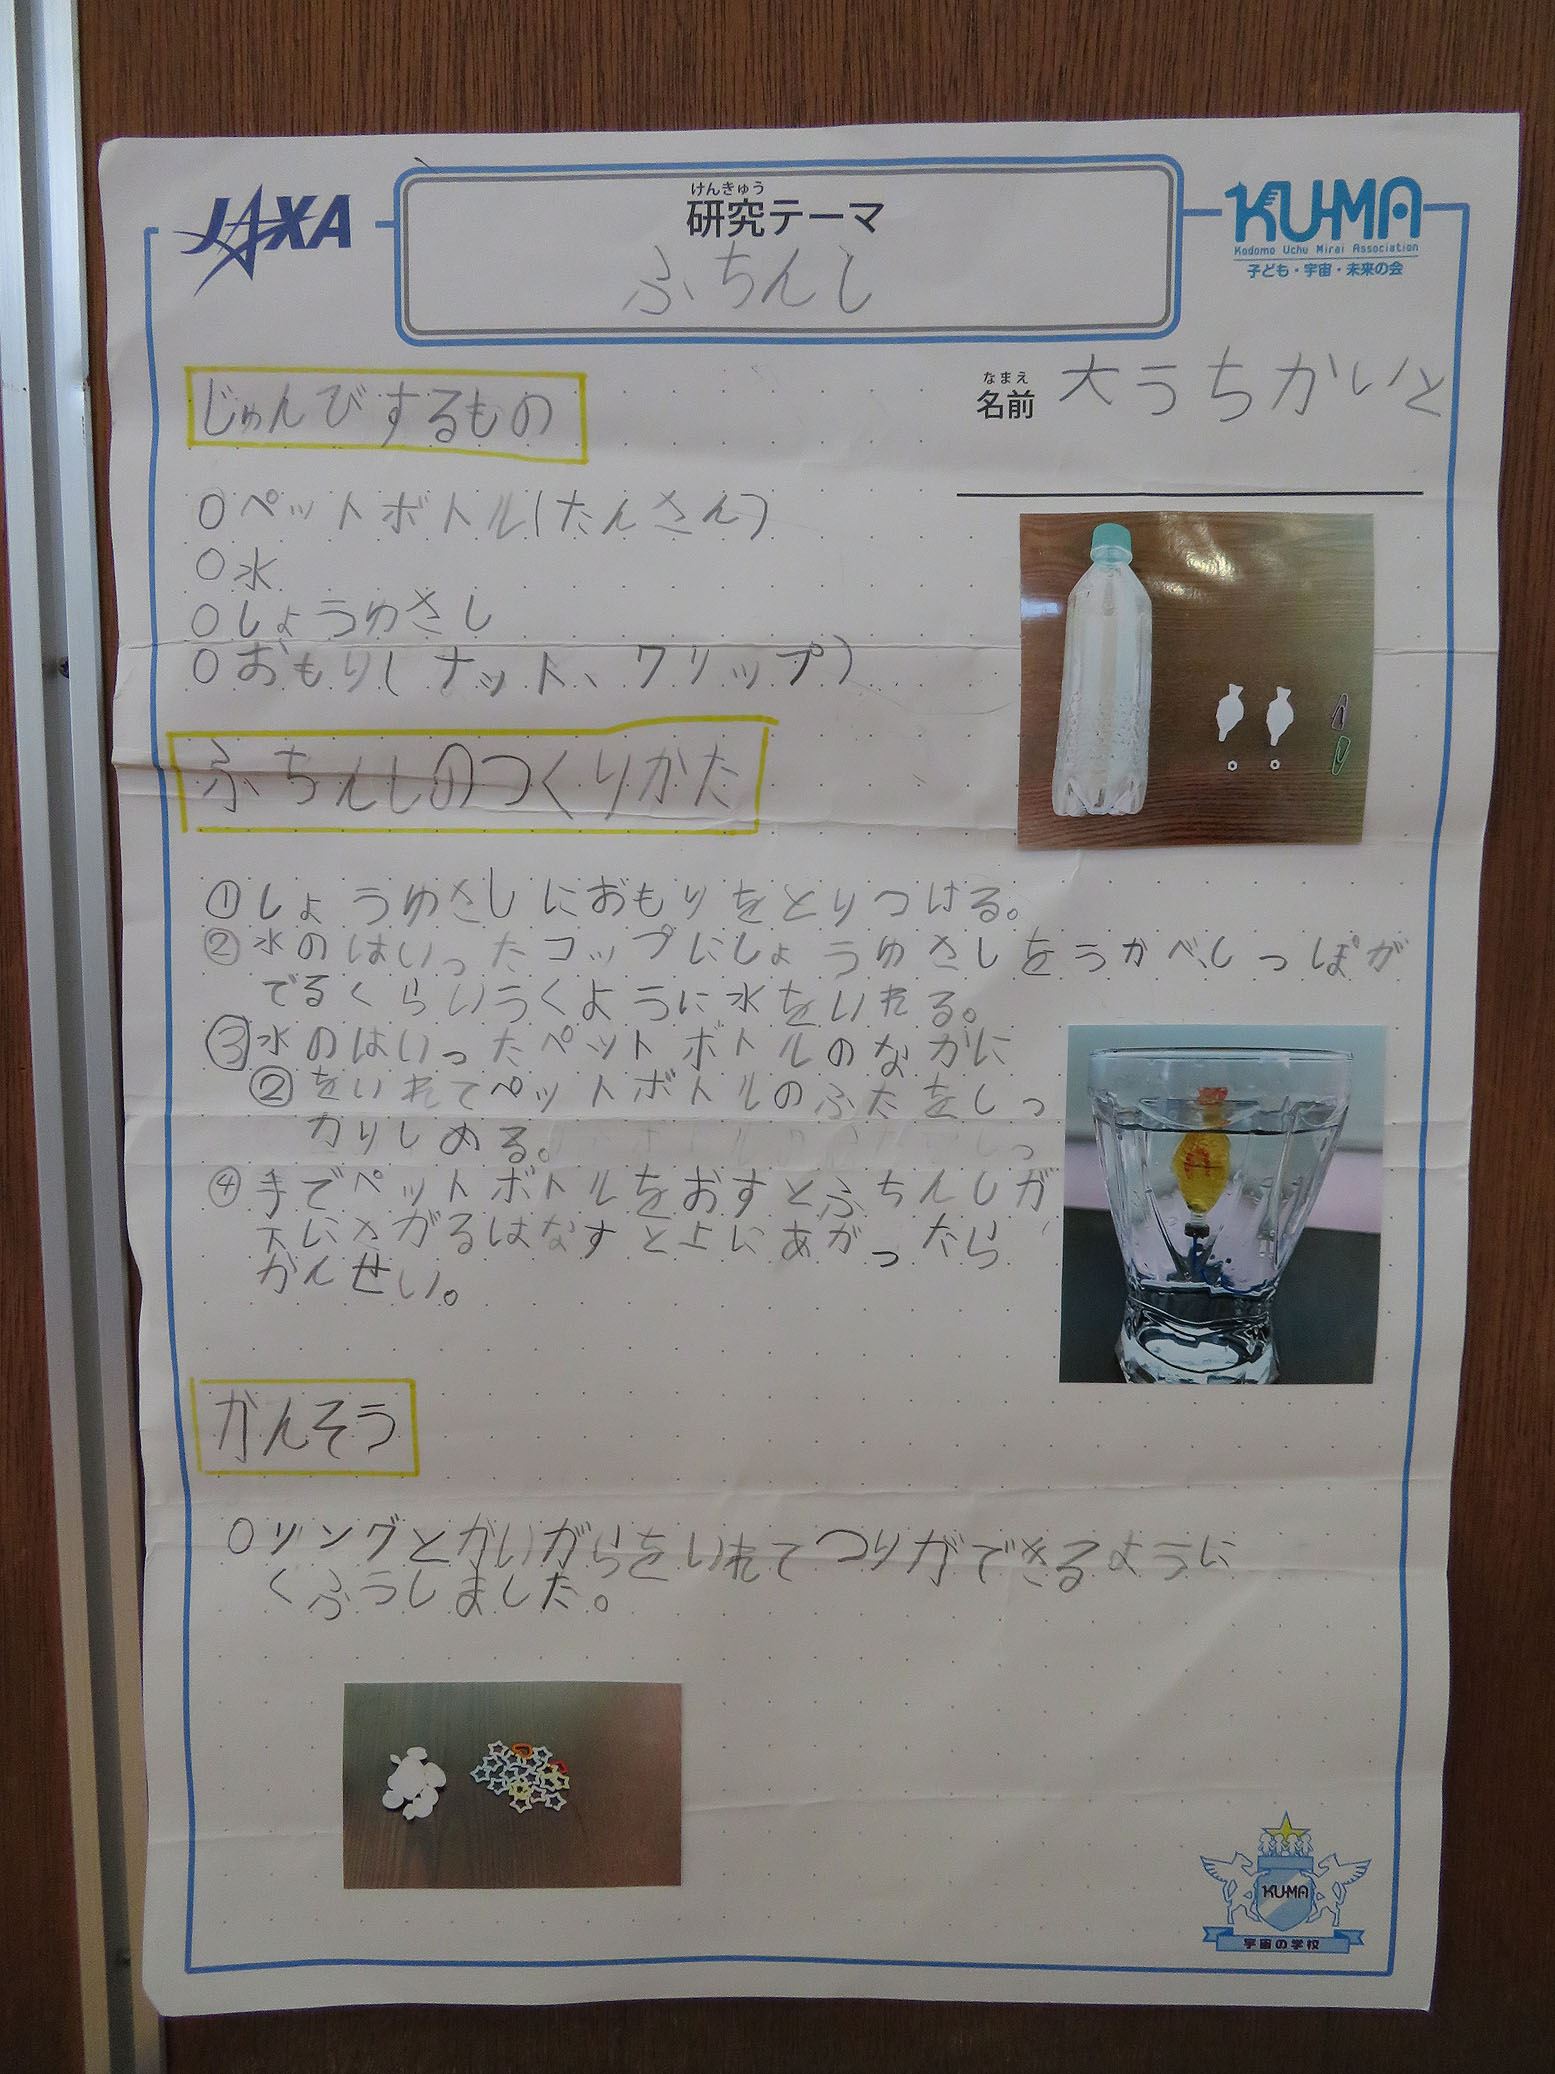 JAXA
けんきゅう
研究テーマ
ふちんし
KU-MA
Kodomo Uchu Mirai Association
子ども・宇宙・未来の会
なまえ
名前 大うちかいと
じゅんびするもの
○ペットボトル(たんさん)
○水
○しょうゆさし
○おもり(ナット、クリップ)
ふちんしのつくりかた
①しょうゆさしにおもりをとりつける。
②水のはいったコップにしょうゆさしをうかべ、しっぽが
でるくらいうくように水をいれる。
③水のはいったペットボトルのなかに
②をいれてペットボトルのふたをしっ
かりしめる。
④手でペットボトルをおすとふちんしが
下にさがるはなすと上にあがったら
かんせい。
かんそう
○リングとかいがらをいれてつりができるように
くふうしました。
KU-MA
宇宙の学校